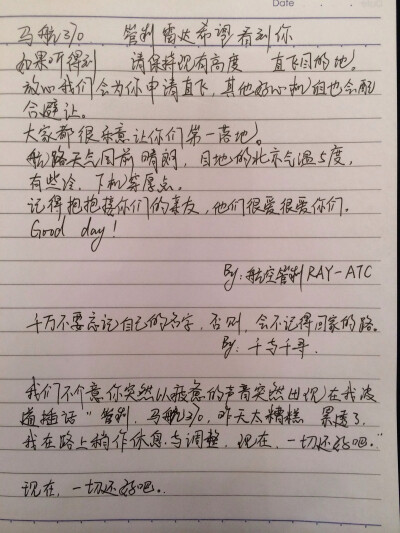 Date
马航370 管制雷达希望看到你
如果听得到 请保持现有高度 直飞目的地。
放心我们会为你申请直飞，其他好心机组也会配
合避让。
大家都很乐意让你们第一落地。
航路天气目前晴朗，目地的北京气温5度，
有些冷，下机穿厚点。
记得抱抱接你们的亲友，他们很爱很爱你们.
Good day!
By: 航空管制 RAY-ATC
千万不要忘记自己的名字，否则，会不记得回家的路。
By: 千与千寻.
我们不介意你突然以疲惫的声音突然出现在我波
道插话“管制，马航370，昨天太糟糕 累透了，
我在路上稍作休息与调整，现在，一切还好吧。”
现在，一切还好吧..